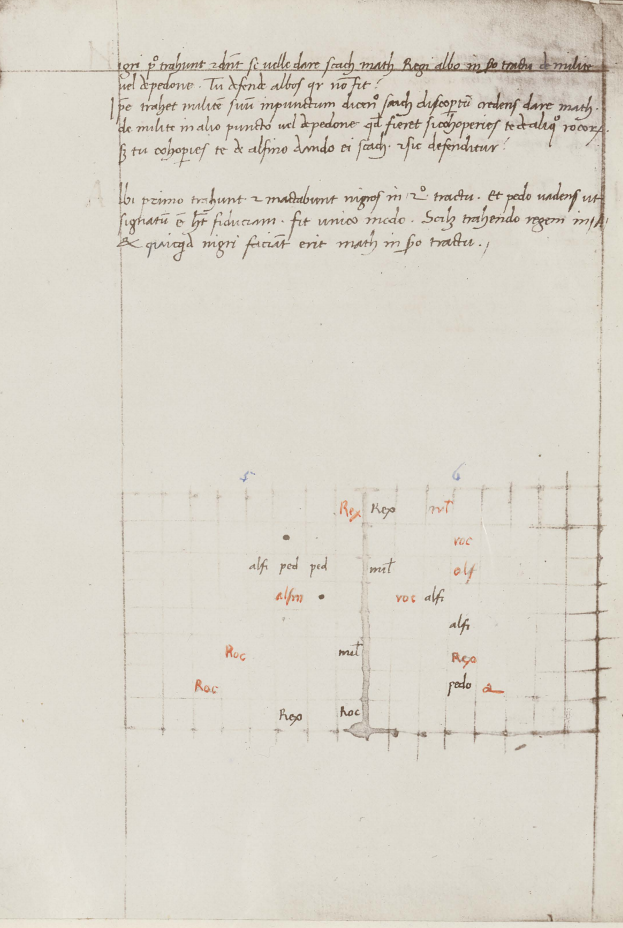 igri p° trahunt et dn̄t se velle dare scach math Regi albo in so tractu de milite
vel de pedone. Tu defende albos qr no fit:
pe trahet milite suu in punctum dicen° scach discoptu credens dare math
de milite in alio puncto vel de pedone qd fieret si cohoperies te de aliq° rocor
S tu cohopies te de alfino dando ei scach. et sic defenditur:
Ibi primo trahunt et mactabunt nigros in 2° tractu. Et pedo vadens ut
signatu e ht fiduciam. fit unico modo. Scilz trahendo regem in
Et quicqd nigri faciat erit math in so tractu.
5 6
Rex Rex mil
roc
alfi ped ped mil alf
alfin roc alfi
alfi
Roc mil Rex
Roc pedo 2
Rex Roc